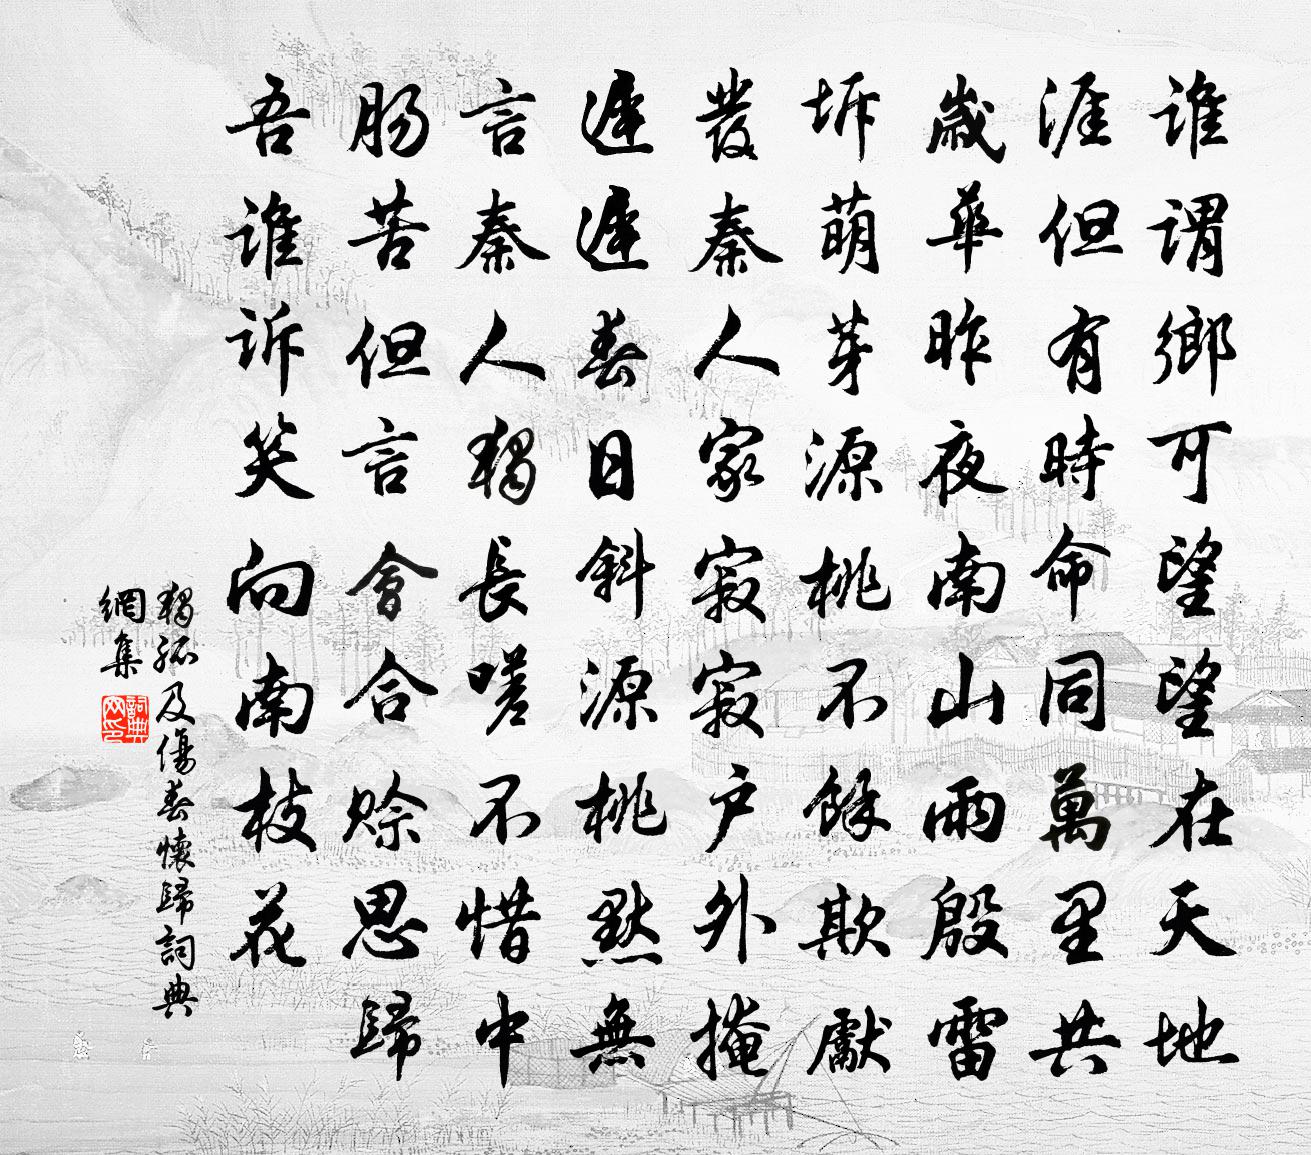 谁谓鄉可望望在天地
涯但有時命同萬里共
歲華昨夜南山雨殷雷
坼萌芽源桃不餘欺獻
發秦人家寂寂户外掩
遲遲春日斜源桃默無
言秦人獨長嗟不惜中
肠苦但言會合赊思歸
吾谁诉笑向南枝花
獨孤及傷春懷歸詞典
網集
詞典網印